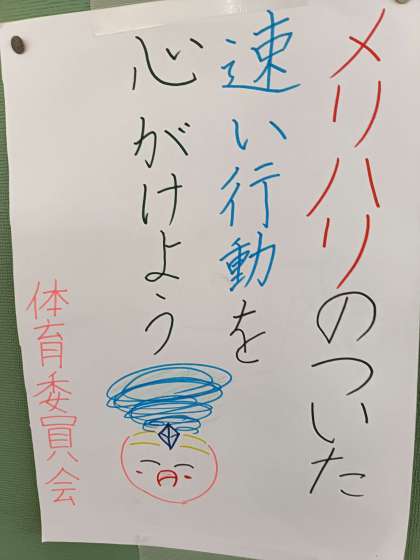 メリハリのついた
速い行動を
心がけよう
体育委員会